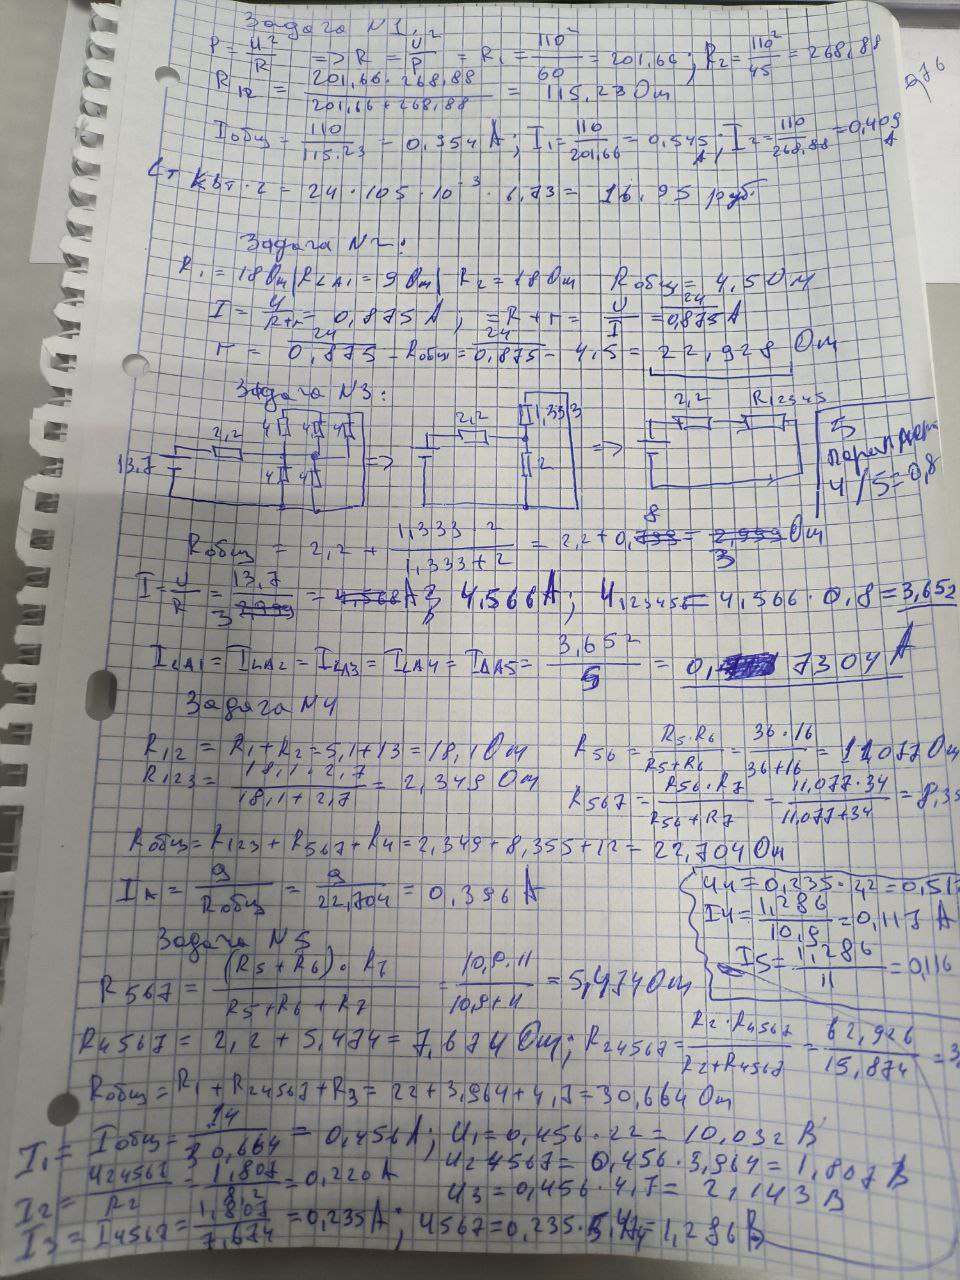 Задача N1.
P = U²/R => R = U²/P = R₁ = 110²/60 = 201,66; R₂ = 110²/45 = 268,88
R₁₂ = 201,66 · 268,88 / 201,66 + 268,88 = 115,23 Ом
Iобщ = 110/115,23 = 0,954 A; I₁ = 110/201,66 = 0,545 A; I₂ = 110/268,88 = 0,409 A
Ст кВт·г = 24 · 105 · 10⁻³ · 6,73 = 16,95 руб.
Задача N2:
R₁ = 18 Ом | RLA₁ = 9 Ом | R₂ = 18 Ом Rобщ = 4,5 Ом
I = U/R+r = 0,875 A; = R + r = U/I = 24/0,875 A
r = 24/0,875 - Rобщ = 24/0,875 - 4,5 = 22,928 Ом
Задача N3:
13,7 2,2 4 4 4 4 4 => 2,2 1,333 2 => 2,2 R12345
5
4/5=0,8
Rобщ = 2,2 + 1,333 · 2 / 1,333 + 2 = 2,2 + 0,8 = 3 Ом
I = U/R = 13,7/3 = 4,566 A; U₁₂₃₄₅₆ = 4,566 · 0,8 = 3,652
ILA1 = ILA2 = ILA3 = ILA4 = ILA5 = 3,652/5 = 0,7304 A
Задача N4
R₁₂ = R₁ + R₂ = 5,1 + 13 = 18,1 Ом R₅₆ = R₅·R₆/R₅+R₆ = 36·16/36+16 = 11,077 Ом
R₁₂₃ = 18,1 · 2,7 / 18,1 + 2,7 = 2,349 Ом R₅₆₇ = R₅₆·R₇/R₅₆+R₇ = 11,077·34/11,077+34 = 8,35
Rобщ = R₁₂₃ + R₅₆₇ + R₄ = 2,349 + 8,355 + 12 = 22,704 Ом
IA = 9/Rобщ = 9/22,704 = 0,396 A
U₄ = 0,235 · 2,2 = 0,517
I₄ = 1,286/10,9 = 0,117 A
I₅ = 1,286/11 = 0,116
Задача N5
R₅₆₇ = (R₅+R₆)·R₇ / R₅+R₆+R₇ = 10,9·11 / 10,9+11 = 5,474 Ом
R₄₅₆₇ = 2,2 + 5,474 = 7,674 Ом; R₂₄₅₆₇ = R₂·R₄₅₆₇ / R₂+R₄₅₆₇ = 62,926/15,874 = 3,
Rобщ = R₁ + R₂₄₅₆₇ + R₃ = 22 + 3,964 + 4,7 = 30,664 Ом
I₁ = Iобщ = 14/30,664 = 0,456 A; U₁ = 0,456 · 22 = 10,032 В
I₂ = U24567/R₂ = 1,807/8,2 = 0,220 A U24567 = 0,456 · 3,964 = 1,807 В
U₃ = 0,456 · 4,7 = 2,143 В
I₃ = I4567 = 1,807/7,674 = 0,235 A; U567 = 0,235 · 5,474 = 1,286 В